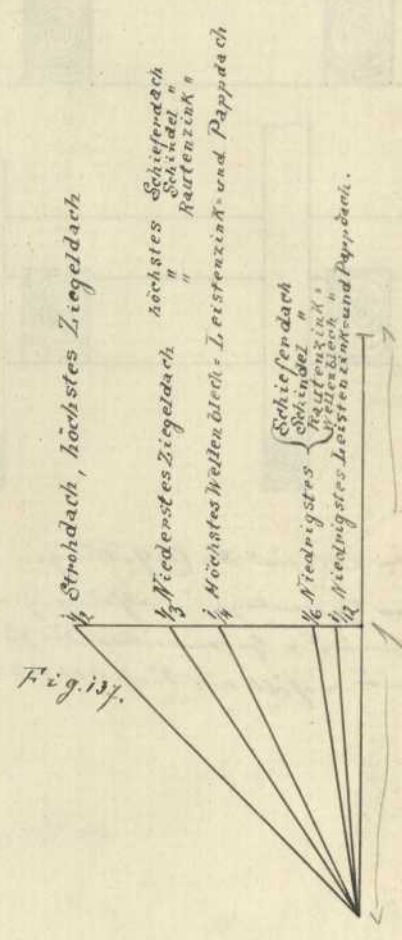 Fig. 137.
1/2 Strohdach, höchstes Ziegeldach
1/3 Niederstes Ziegeldach höchstes Schieferdach
" Schindel "
" Rautenzink "
1/4 Höchstes Wellenblech- Leistenzink- und Pappdach
1/6 Niedrigstes { Schieferdach
Schindel "
Rautenzink "
Wellenblech "
1/12 Niedrigstes Leistenzink- und Pappdach.
1